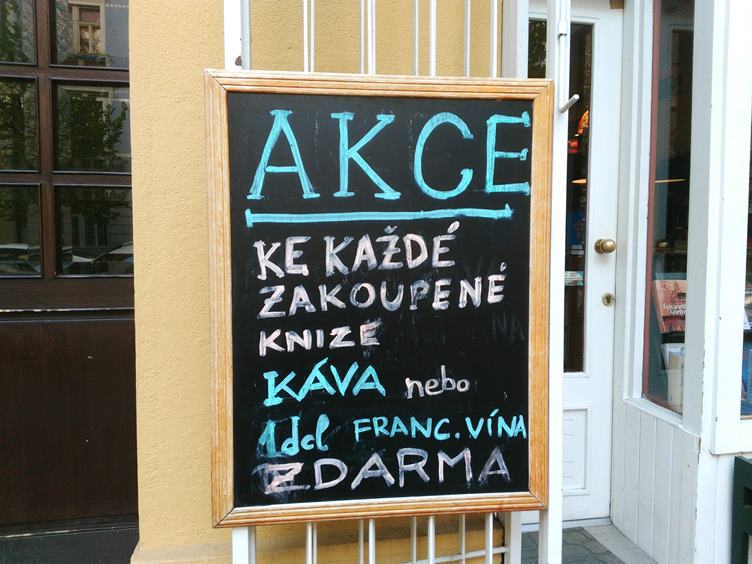 AKCE
KE KAŽDÉ
ZAKOUPENÉ
KNIZE
KÁVA nebo
1dcl FRANC. VÍNA
ZDARMA